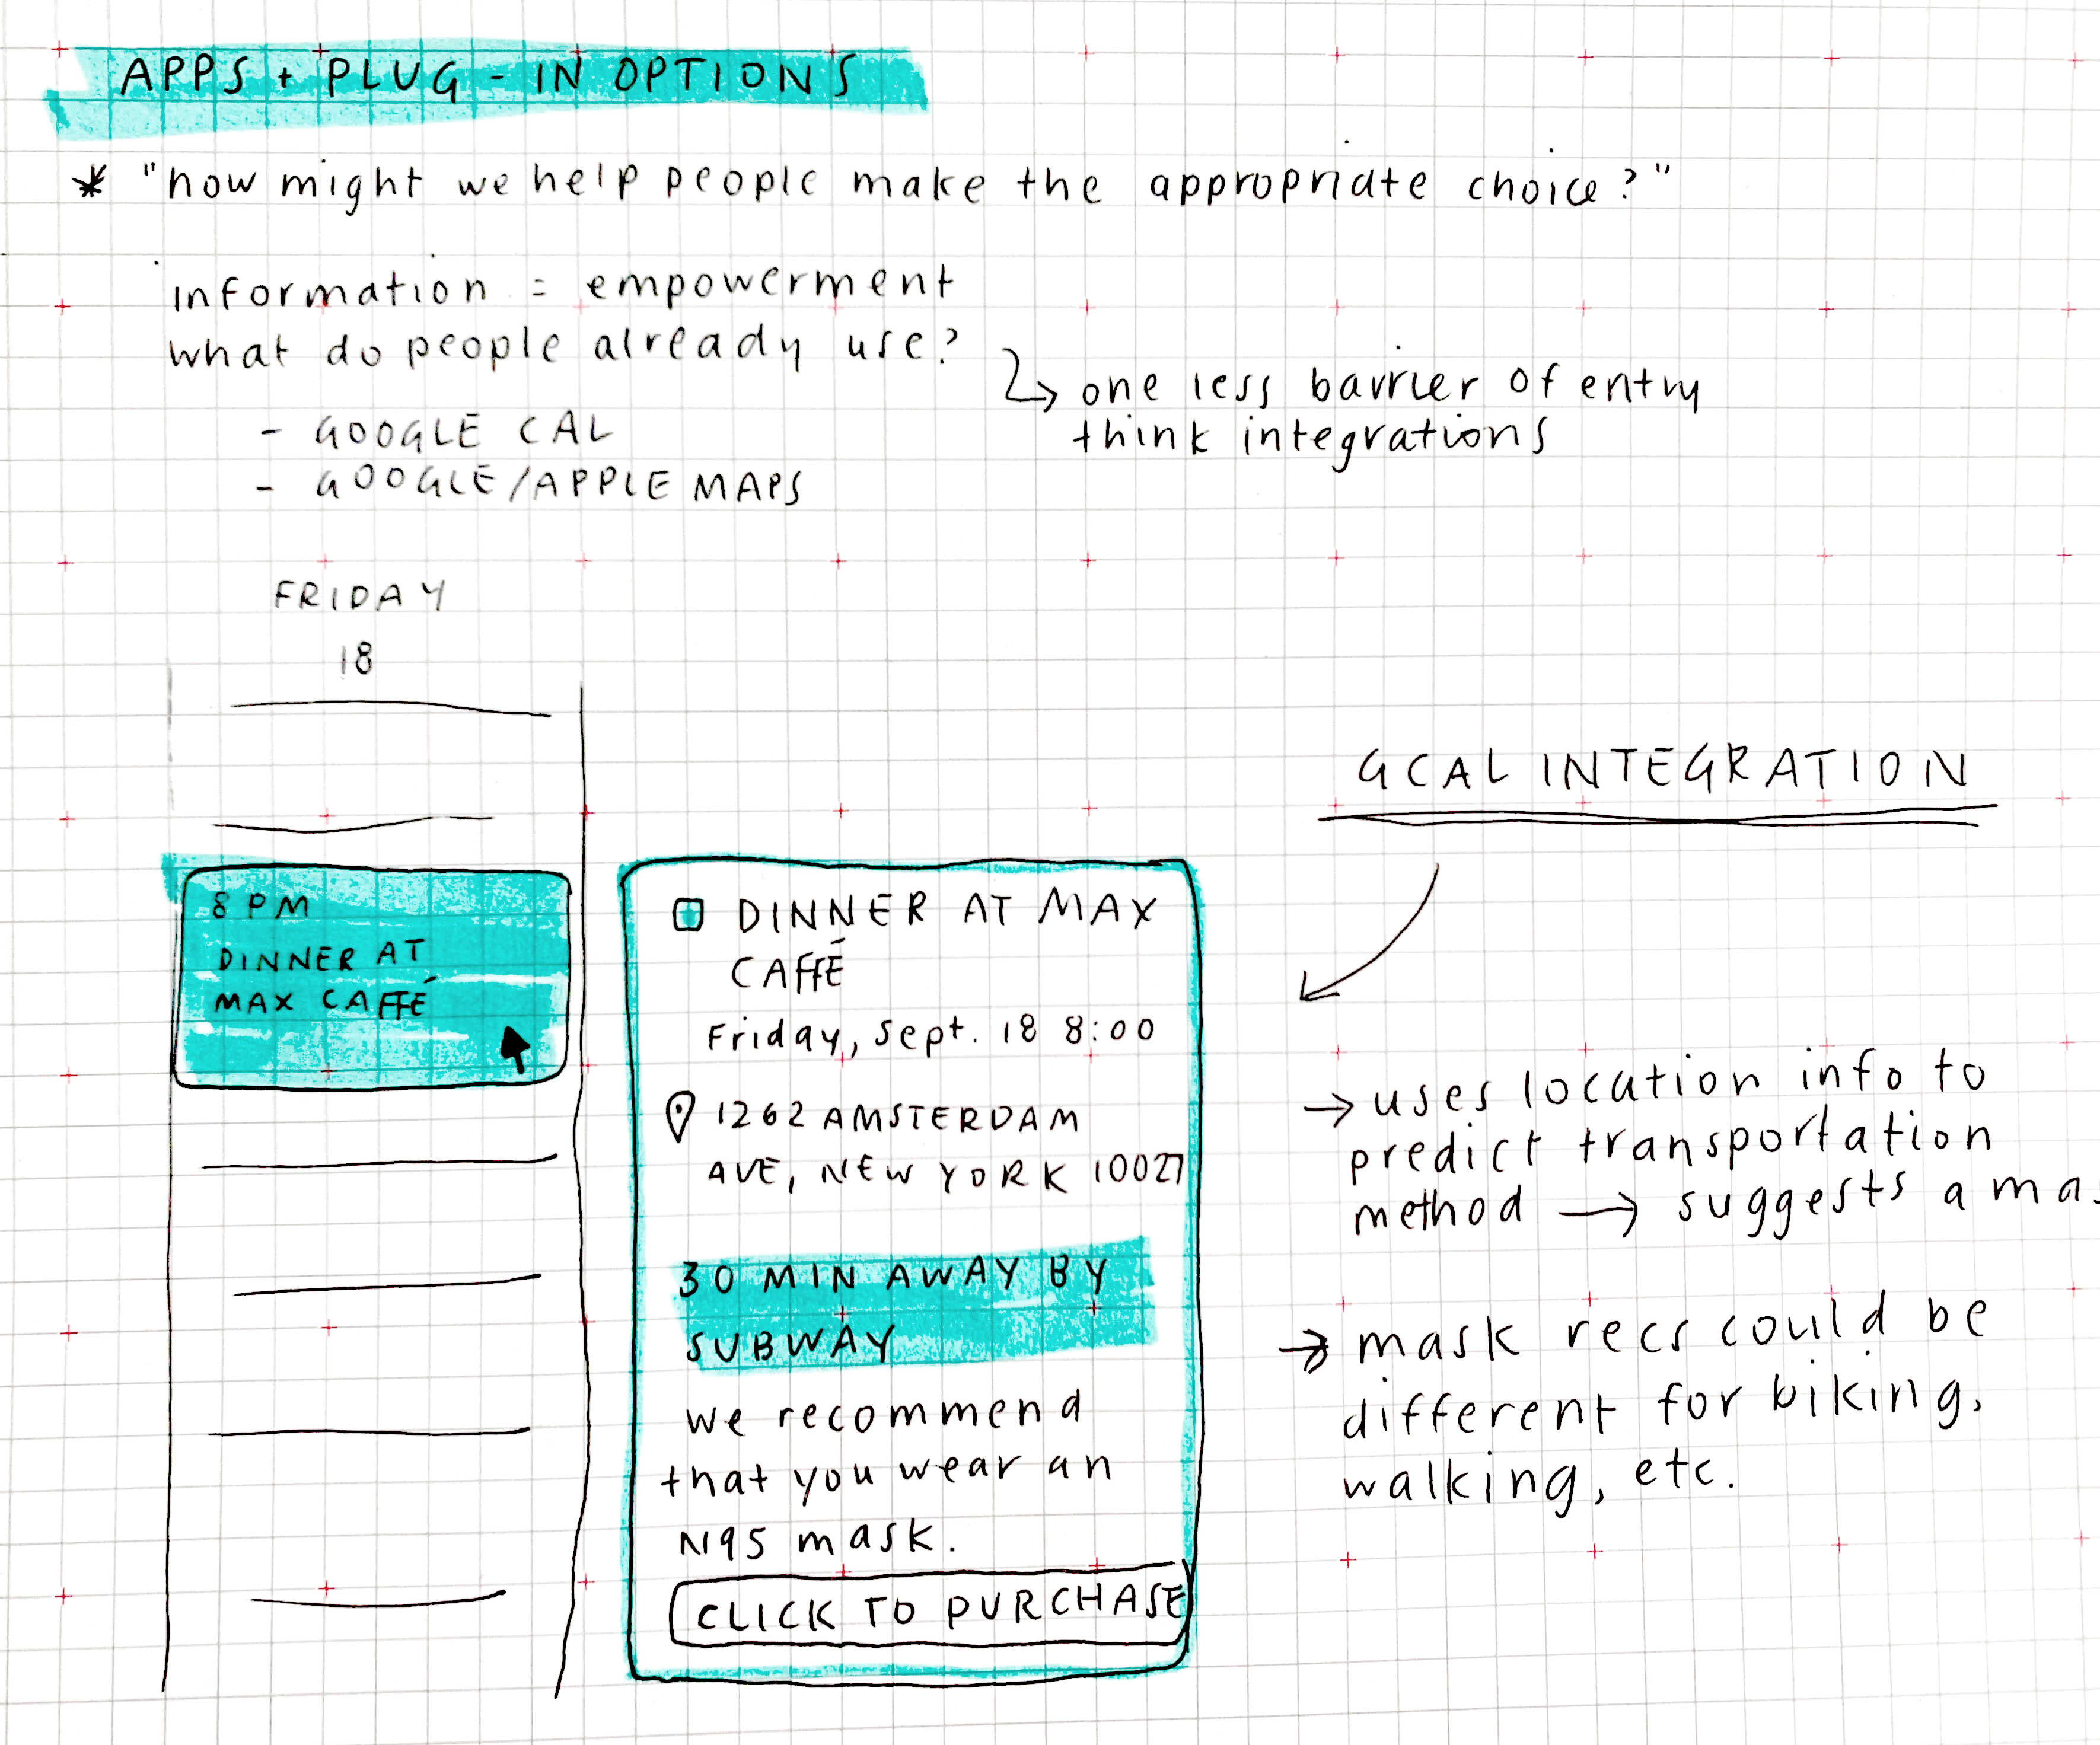 APPS + PLUG-IN OPTIONS
* "how might we help people make the appropriate choice?"
information = empowerment
what do people already use?
↳ one less barrier of entry
think integrations
- GOOGLE CAL
- GOOGLE/APPLE MAPS
FRIDAY
18
8 PM
DINNER AT
MAX CAFFÉ
DINNER AT MAX
CAFFÉ
Friday, Sept. 18 8:00
1262 AMSTERDAM
AVE, NEW YORK 10027
30 MIN AWAY BY
SUBWAY
we recommend
that you wear an
N95 mask.
CLICK TO PURCHASE
GCAL INTEGRATION
→ uses location info to
predict transportation
method → suggests a
→ mask recs could be
different for biking,
walking, etc.